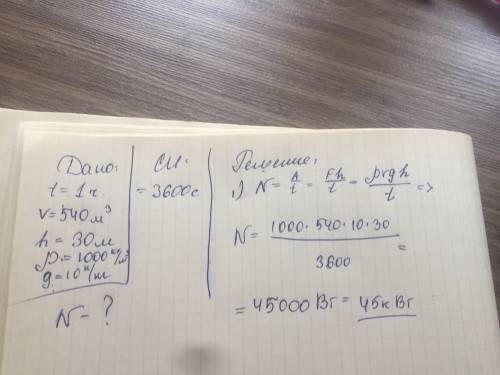 Дано:
t = 1 ч.
V = 540 м³
h = 30 м
ρ = 1000 кг/м³
g = 10 н/кг
N - ?
СИ:
= 3600 с
Решение:
1) N = A/t = Fh/t = ρVgh/t =>
N = 1000 · 540 · 10 · 30 / 3600 =
= 45000 Вт = 45 кВт